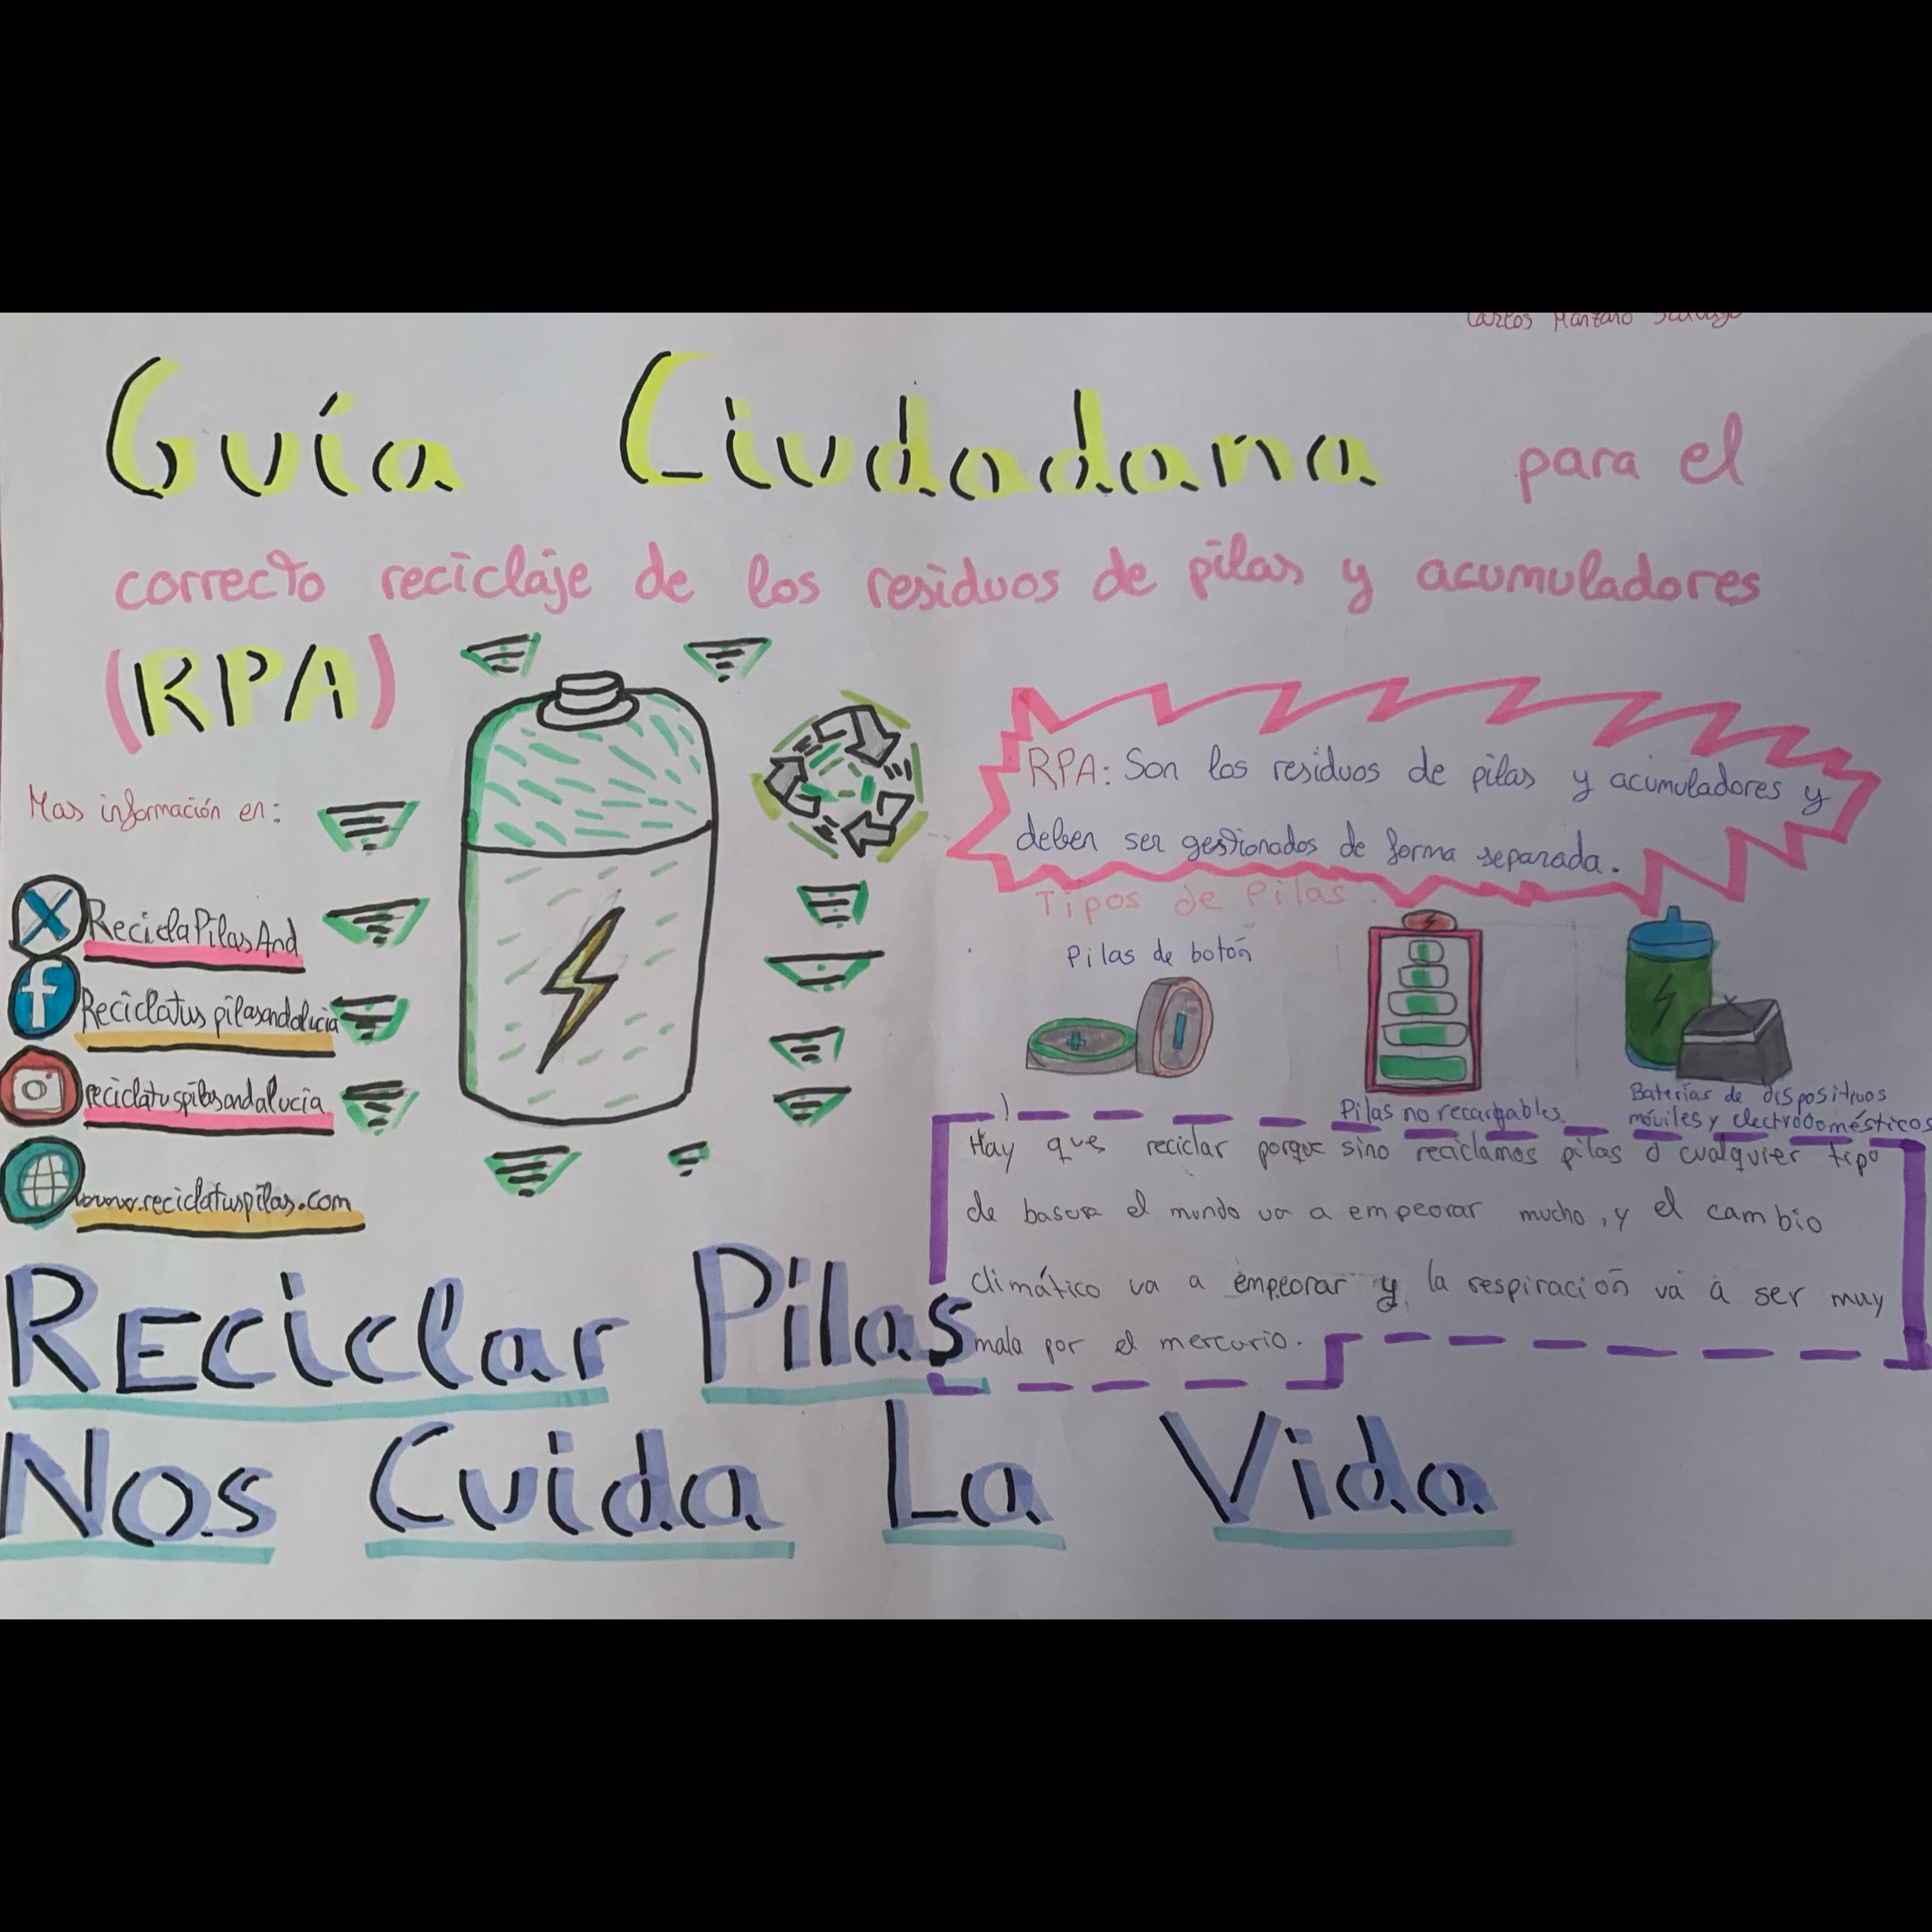 Carlos Manzano
Guía Ciudadana para el
correcto reciclaje de los residuos de pilas y acumuladores
(RPA)
Mas información en:
ReciclaPilasAnd
Reciclatus pilasandalucia
reciclatuspilasandalucia
www.reciclatuspilas.com
RPA: Son los residuos de pilas y acumuladores y
deben ser gestionados de forma separada.
Tipos de Pilas.
Pilas de botón
Pilas no recargables
Baterías de dispositivos
móviles y electrodomésticos
Hay que reciclar porque sino reciclamos pilas o cualquier tipo
de basura el mundo va a empeorar mucho, y el cambio
climático va a empeorar y la respiración va a ser muy
mala por el mercurio.
Reciclar Pilas
Nos Cuida La Vida